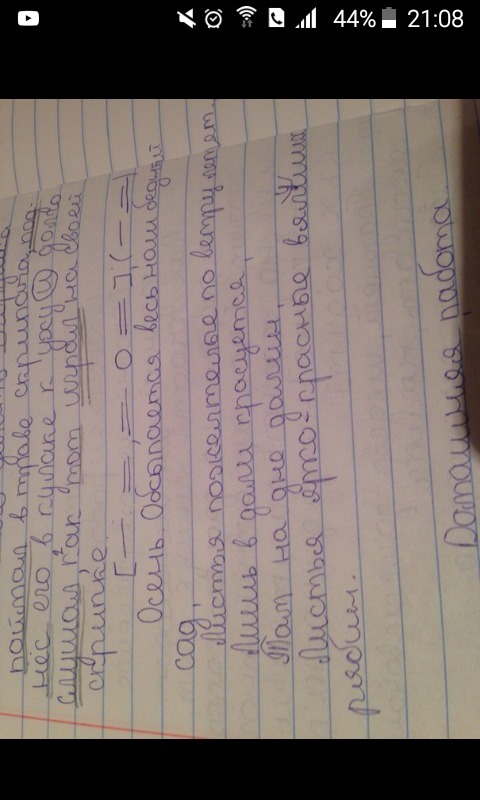 44% 21:08
поймал в траве скрипача, под-
нёс его в кулаке к уху и долго
слушал, как тот играл на своей
скрипке
[— =, = О = ], (— =)
Осень. Обсыпается весь наш бедный
сад,
Листья пожелтелые по ветру летят.
Лишь в дали красуется,
Там на дне долин,
Листья ярко-красные вял
рябин.
Домашняя работа.